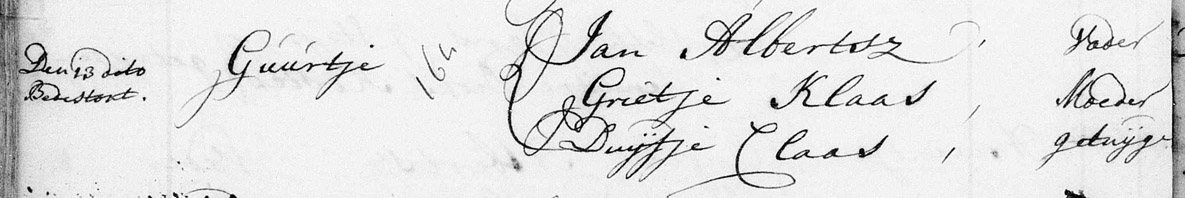 Den 13 dito
Bedestont.
Guurtje
164
Jan Albertsz, Vader
Grietje Klaas, Moeder
Duijfje Claas, getuijge